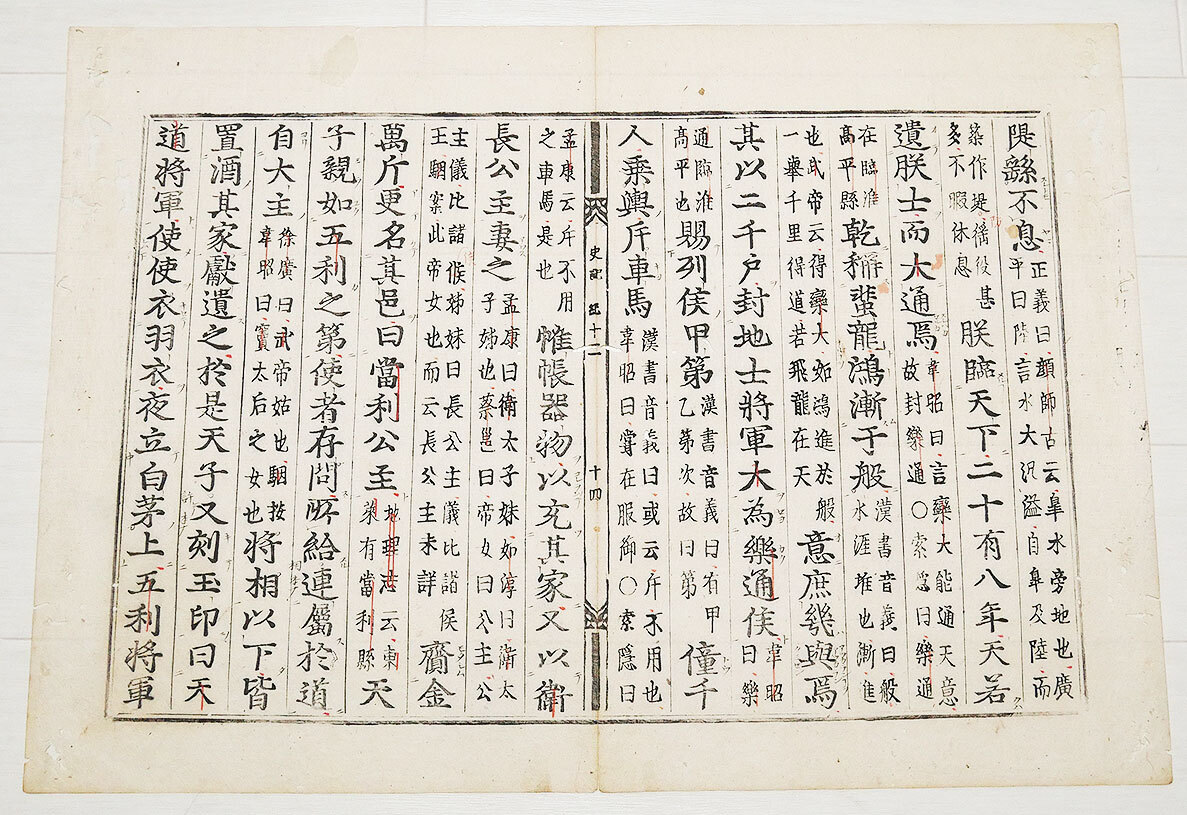 隄繇不息
正義曰顔師古云皐水旁地也廣
平曰陸言水大汎溢自皐及陸而
築作堤徭役甚
多不暇休息
朕臨天下二十有八年天若
遺朕士而大通焉
韋昭曰言欒大能通天意
故封樂通○索隱曰樂通
在臨淮
高平縣
乾稱蜚龍鴻漸于般
漢書音義曰般
水涯堆也漸進
也武帝云得欒大如鴻進於般
一舉千里得道若飛龍在天
意庶幾與焉
其以二千戸封地士將軍大為樂通侯
韋昭
曰樂
通臨淮
高平也
賜列侯甲第
漢書音義曰有甲
乙第次故曰第
僮千
人乘輿斥車馬
漢書音義曰或云斥不用也
韋昭曰嘗在服御○索隱曰
史記 紀十二 十四
孟康云斥不用
之車馬是也
帷帳器物以充其家又以衛
長公主妻之
孟康曰衛太子妹如淳曰衛太
子姊也蔡邕曰帝女曰公主公
主儀比諸侯姊妹曰長公主儀比諸侯
王駰案此帝女也而云長公主未詳
齎金
萬斤更名其邑曰當利公主
地理志云東
萊有當利縣
天
子親如五利之第使者存問所給連屬於道
自大主
徐廣曰武帝姑也駰按
韋昭曰竇太后之女也
將相以下皆
置酒其家獻遺之於是天子又刻玉印曰天
道將軍使使衣羽衣夜立白茅上五利將軍